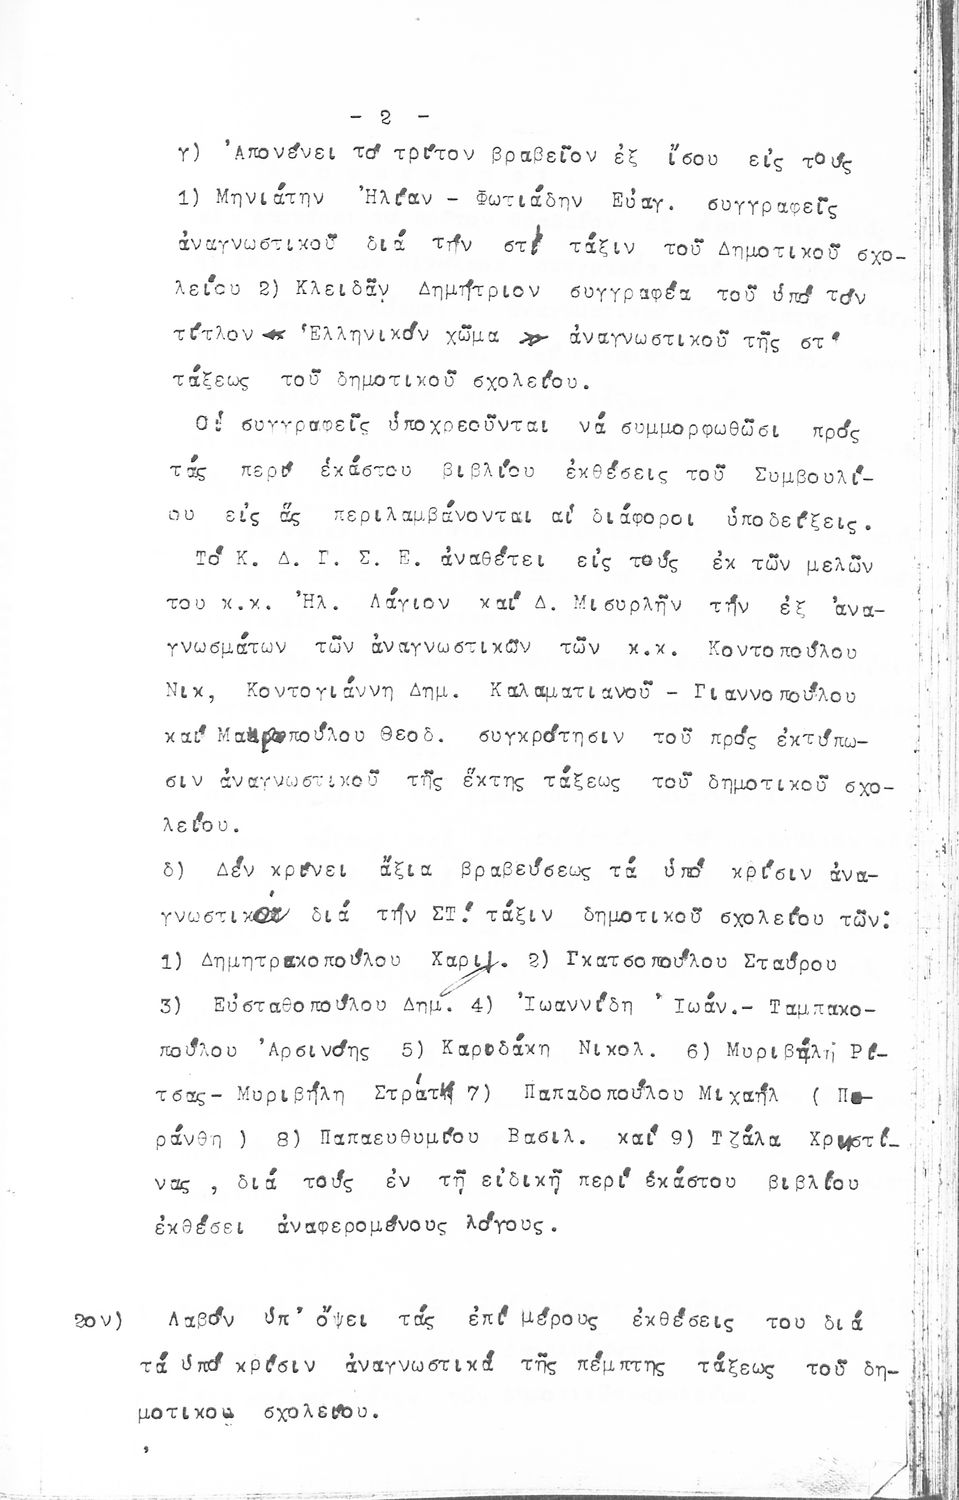 - 2 -
γ) Ἀπονέμει τό τρίτον βραβεῖον ἐξ ἴσου εἰς τούς
1) Μηνιάτην Ἠλίαν - Φωτιάδην Εὐαγ. συγγραφεῖς
ἀναγνωστικοῦ διά τήν στ! τάξιν τοῦ Δημοτικοῦ σχο-
λείου 2) Κλειδᾶν Δημήτριον συγγραφέα τοῦ ὑπό τόν
τίτλον « Ἑλληνικόν χῶμα » ἀναγνωστικοῦ τῆς στ'
τάξεως τοῦ δημοτικοῦ σχολείου.
Οἱ συγγραφεῖς ὑποχρεοῦνται νά συμμορφωθῶσι πρός
τάς περί ἑκάστου βιβλίου ἐκθέσεις τοῦ Συμβουλί-
ου εἰς ἅς περιλαμβάνονται αἱ διάφοροι ὑποδείξεις.
Τό Κ. Δ. Γ. Σ. Ε. ἀναθέτει εἰς τούς ἐκ τῶν μελῶν
του κ.κ. Ἠλ. Λάγιον καί Δ. Μισυρλῆν τήν ἐξ ἀνα-
γνωσμάτων τῶν ἀναγνωστικῶν τῶν κ.κ. Κοντοπούλου
Νικ, Κοντογιάννη Δημ. Καλαματιανοῦ - Γιαννοπούλου
καί Μακροπούλου Θεοδ. συγκρότησιν τοῦ πρός ἐκτύπω-
σιν ἀναγνωστικοῦ τῆς ἕκτης τάξεως τοῦ δημοτικοῦ σχο-
λείου.
δ) Δέν κρίνει ἄξια βραβεύσεως τά ὑπό κρίσιν ἀνα-
γνωστικά διά τήν ΣΤ! τάξιν δημοτικοῦ σχολείου τῶν:
1) Δημητρακοπούλου Χαριλ. 2) Γκατσοπούλου Σταύρου
3) Εὐσταθοπούλου Δημ. 4) Ἰωαννίδη Ἰωάν.- Ταμπακο-
πούλου Ἀρσινόης 5) Καρυδάκη Νικολ. 6) Μυριβήλη Ρί-
τσας- Μυριβήλη Στράτη 7) Παπαδοπούλου Μιχαήλ ( Πε-
ράνθη ) 8) Παπαευθυμίου Βασιλ. καί 9) Τζάλα Χρηστί-
νας , διά τούς ἐν τῇ εἰδικῇ περί ἑκάστου βιβλίου
ἐκθέσει ἀναφερομένους λόγους.
2ον) Λαβόν ὑπ' ὄψει τάς ἐπί μέρους ἐκθέσεις του διά
τά ὑπό κρίσιν ἀναγνωστικά τῆς πέμπτης τάξεως τοῦ δη-
μοτικου σχολείου.
,